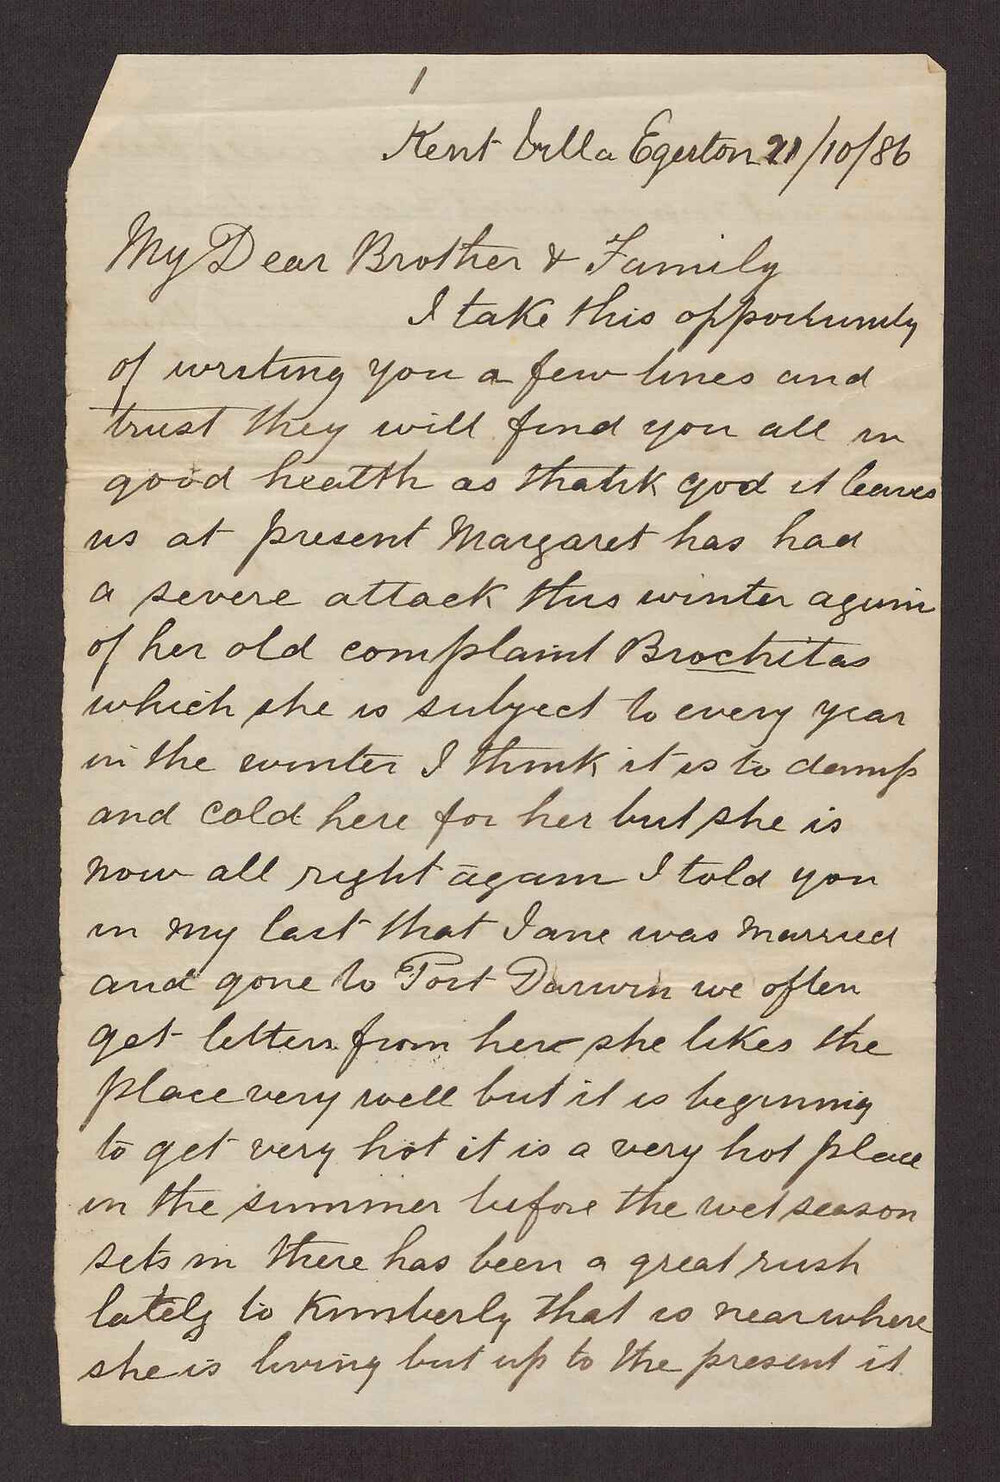 1
Kent Villa Egerton 21/10/86
My Dear Brother & Family
I take this opportunity
of writing you a few lines and
trust they will find you all in
good health as thank god it leaves
us at present Margaret has had
a severe attack this winter again
of her old complaint Brochitas
which she is subject to every year
in the winter I think it is to damp
and cold here for her but she is
now all right again I told you
in my last that Jane was married
and gone to Port Darwin we often
get letters from her she likes the
place very well but it is beginnig
to get very hot it is a very hot place
in the summer before the wet season
sets in there has been a great rush
lately to Kimberly that is near where
she is living but up to the present it